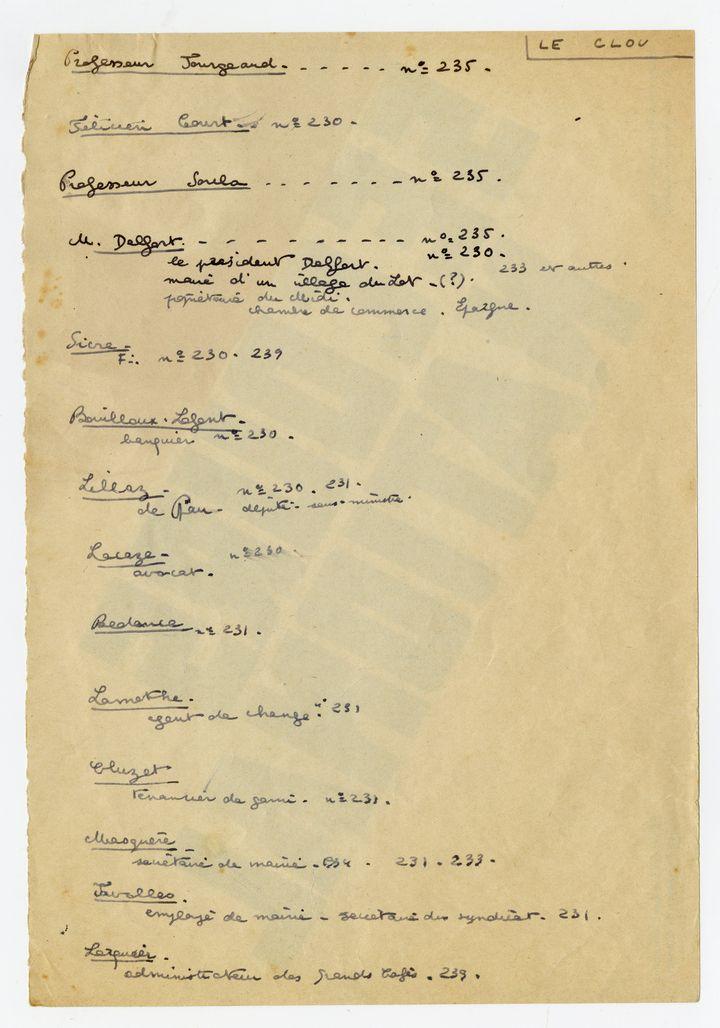 LE CLOU
Professeur Tourgeaud. - - - - - - nº 235.
Félicien Court - nº 230 -
Professeur Soula - - - - - - - nº 235.
M. Delfort. - - - - - - - - - - nº 235.
nº 230.
le président Delfort.
233 et autres.
maire d'un village du Lot - (?).
propriétaire du Midi.
chambre de commerce. Epargne.
Sicre -
F∴ nº 230. 239
Bouilloux-Lafont -
banquier nº 230.
Lillaz - nº 230. 231.
de Pau - député - sous-ministre.
Lacaze - nº 230.
avocat.
Bedouce nº 231.
Lamothe.
agent de change. nº 231
Cluzet
tenancier de garni. nº 231.
Masquère
secrétaire de mairie - 231. 233.
Favolles.
employé de mairie - secrétaire du syndicat. 231.
Larguier.
administrateur des Grands Cafés. 239.